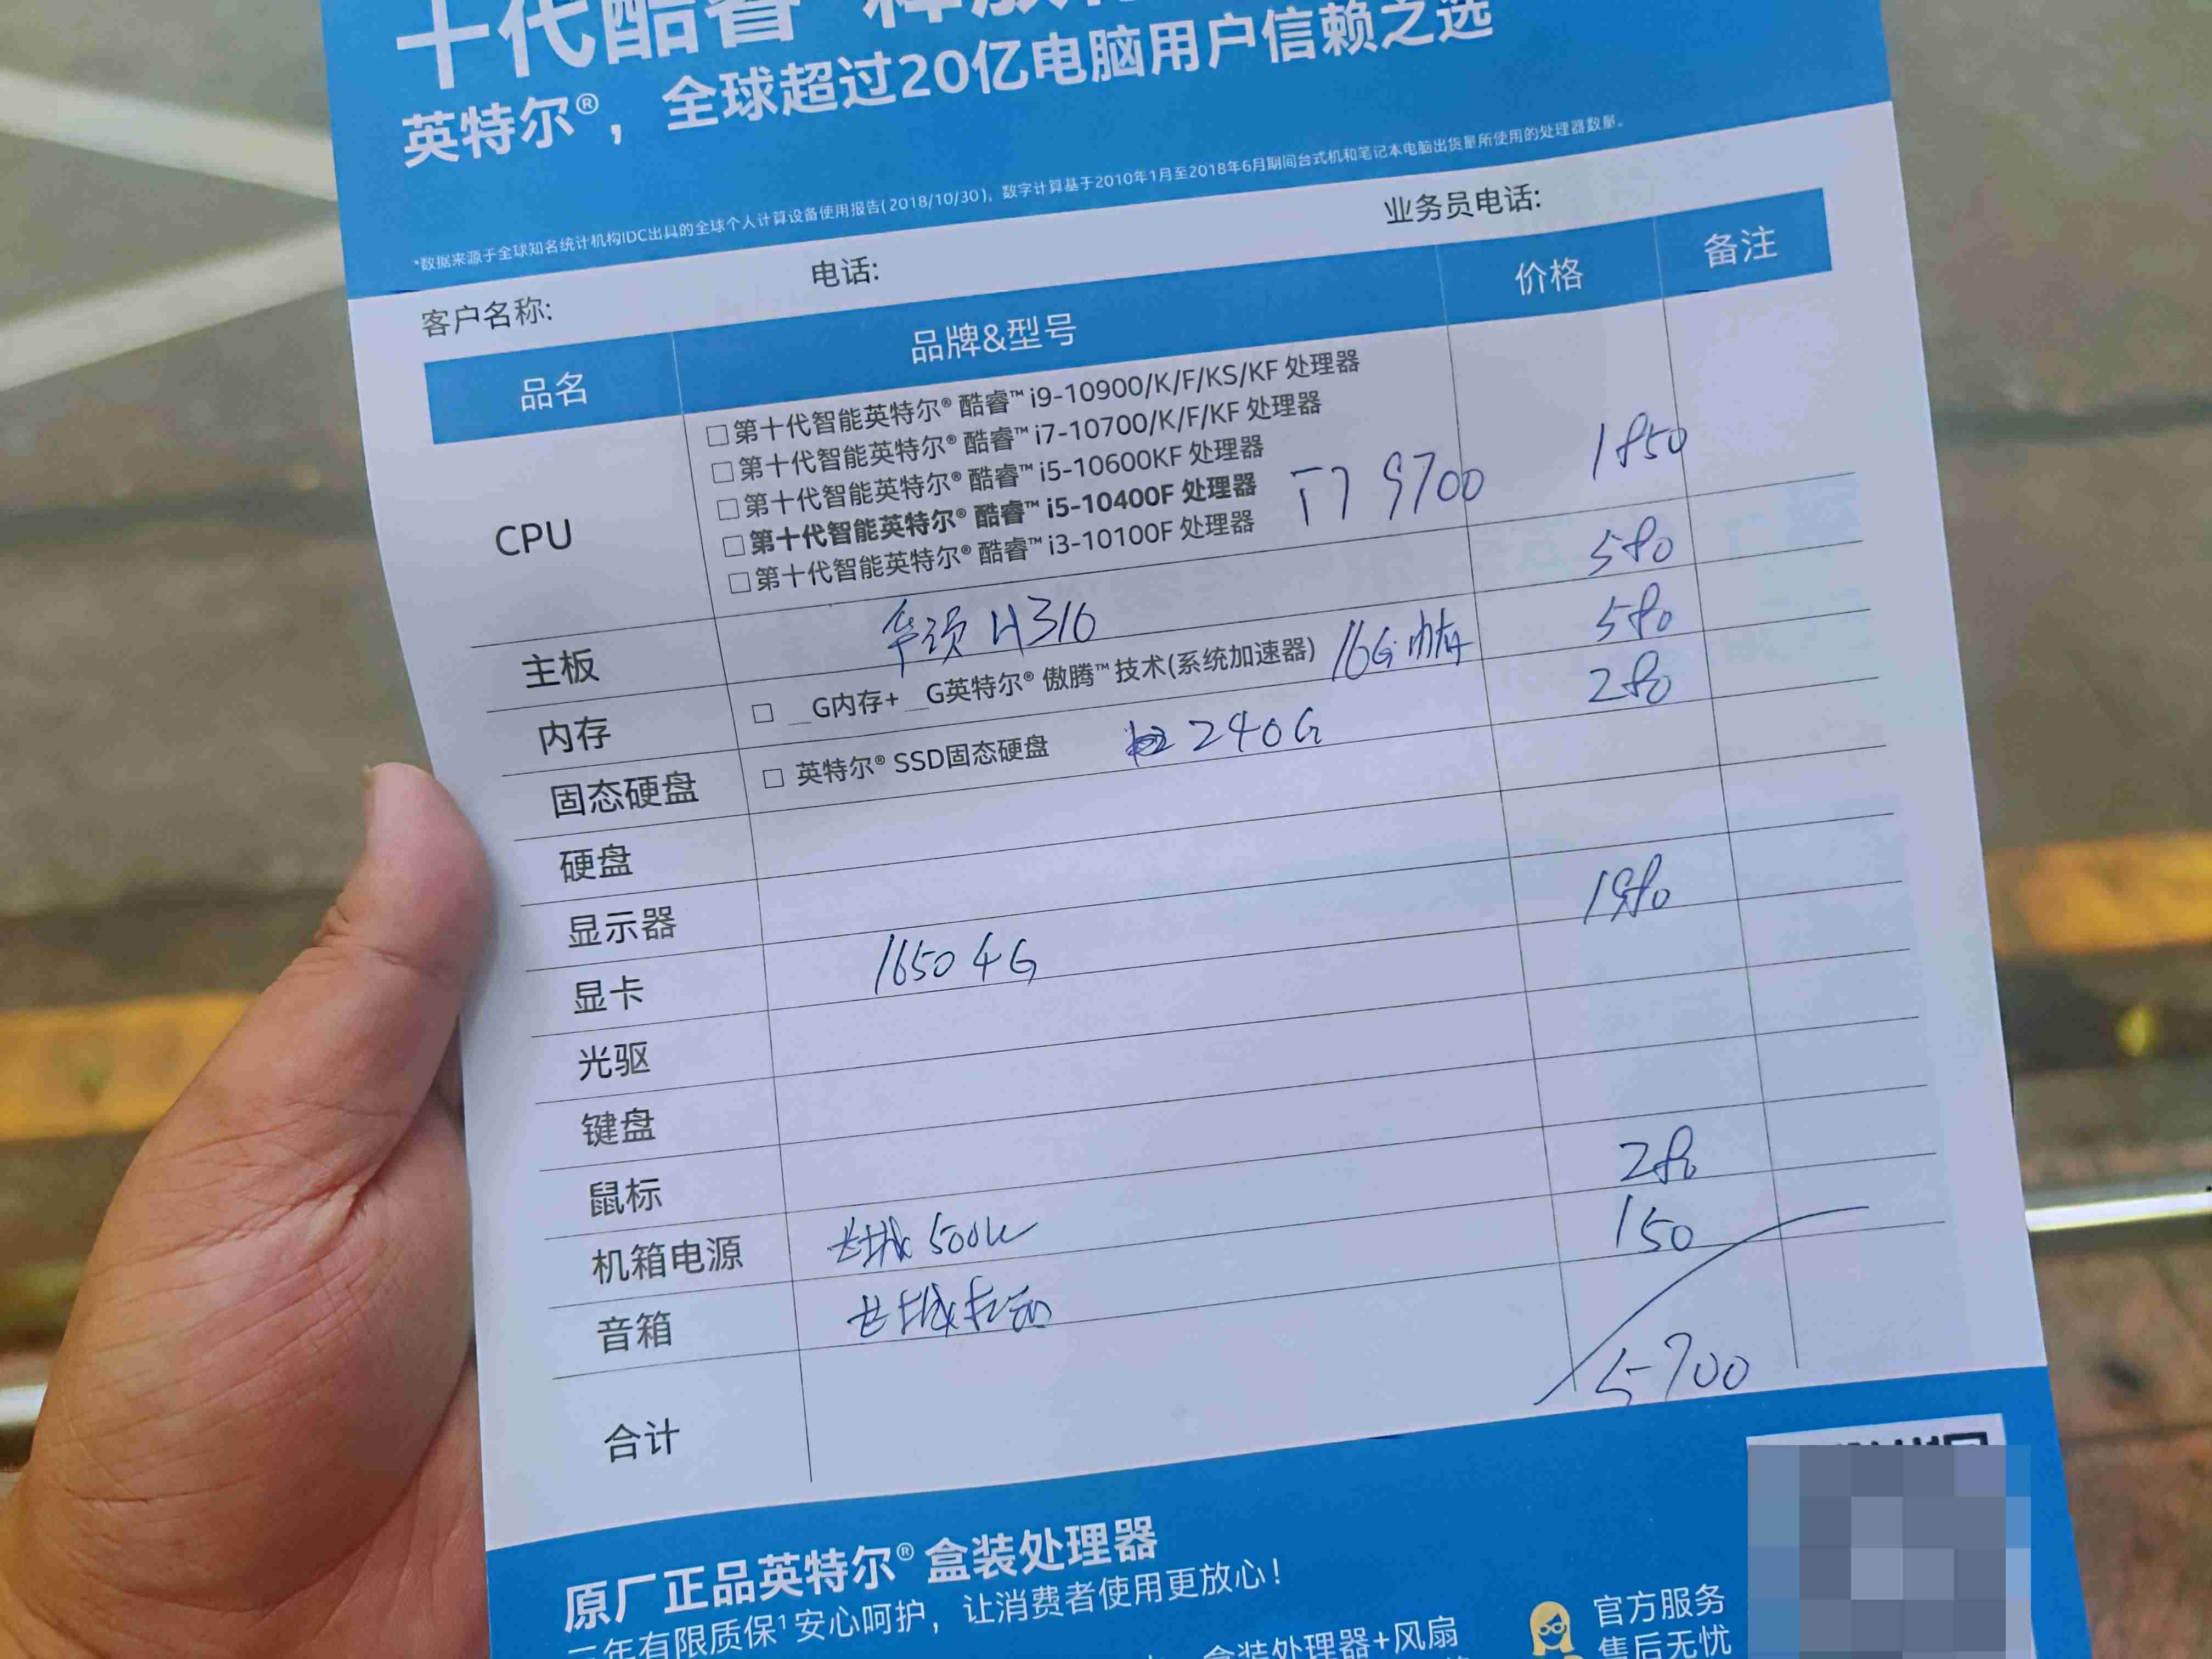 十代酷睿
英特尔®，全球超过20亿电脑用户信赖之选
*数据来源于全球知名统计机构IDC出具的全球个人计算设备使用报告(2018/10/30)，数字计算基于2010年1月至2018年6月期间台式机和笔记本电脑出货量所使用的处理器数量。
客户名称: 电话: 业务员电话:
品名 品牌&型号 价格 备注
CPU
□第十代智能英特尔® 酷睿™ i9-10900/K/F/KS/KF 处理器
□第十代智能英特尔® 酷睿™ i7-10700/K/F/KF 处理器
□第十代智能英特尔® 酷睿™ i5-10600KF 处理器
□第十代智能英特尔® 酷睿™ i5-10400F 处理器
□第十代智能英特尔® 酷睿™ i3-10100F 处理器
I7 9700 1850
主板 华硕 H310 580
内存 □ __G内存+ __G英特尔® 傲腾™ 技术(系统加速器) 16G 内存 580
固态硬盘 □ 英特尔® SSD固态硬盘 240G 280
硬盘
显示器
显卡 1650 4G 1980
光驱
键盘
鼠标
机箱电源 长城 500W 280
音箱 长城 150
合计 5700
原厂正品英特尔® 盒装处理器
三年有限质保¹安心呵护，让消费者使用更放心！
盒装处理器+风扇
官方服务
售后无忧